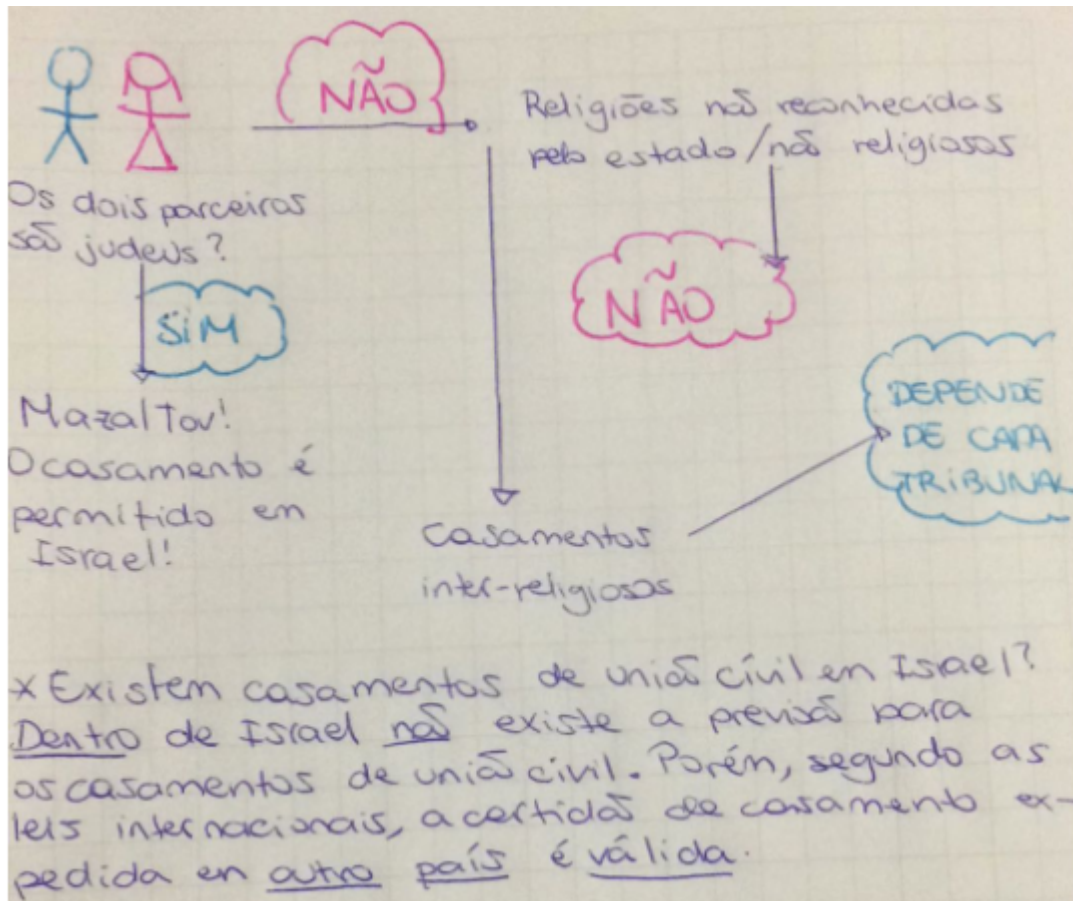 NÃO
Religiões não reconhecidas
pelo estado/não religiosos
Os dois parceiros
são judeus?
SIM
NÃO
Mazal Tov!
O casamento é
permitido en
Israel!
DEPENDE
DE CADA
TRIBUNAL
Casamentos
inter-religiosos
x Existem casamentos de união cívil en Israel?
Dentro de Israel não existe a previsão para
os casamentos de união cívil. Porén, segundo as
leis internacionais, a certidão de casamento ex-
pedida en outro país é válida.